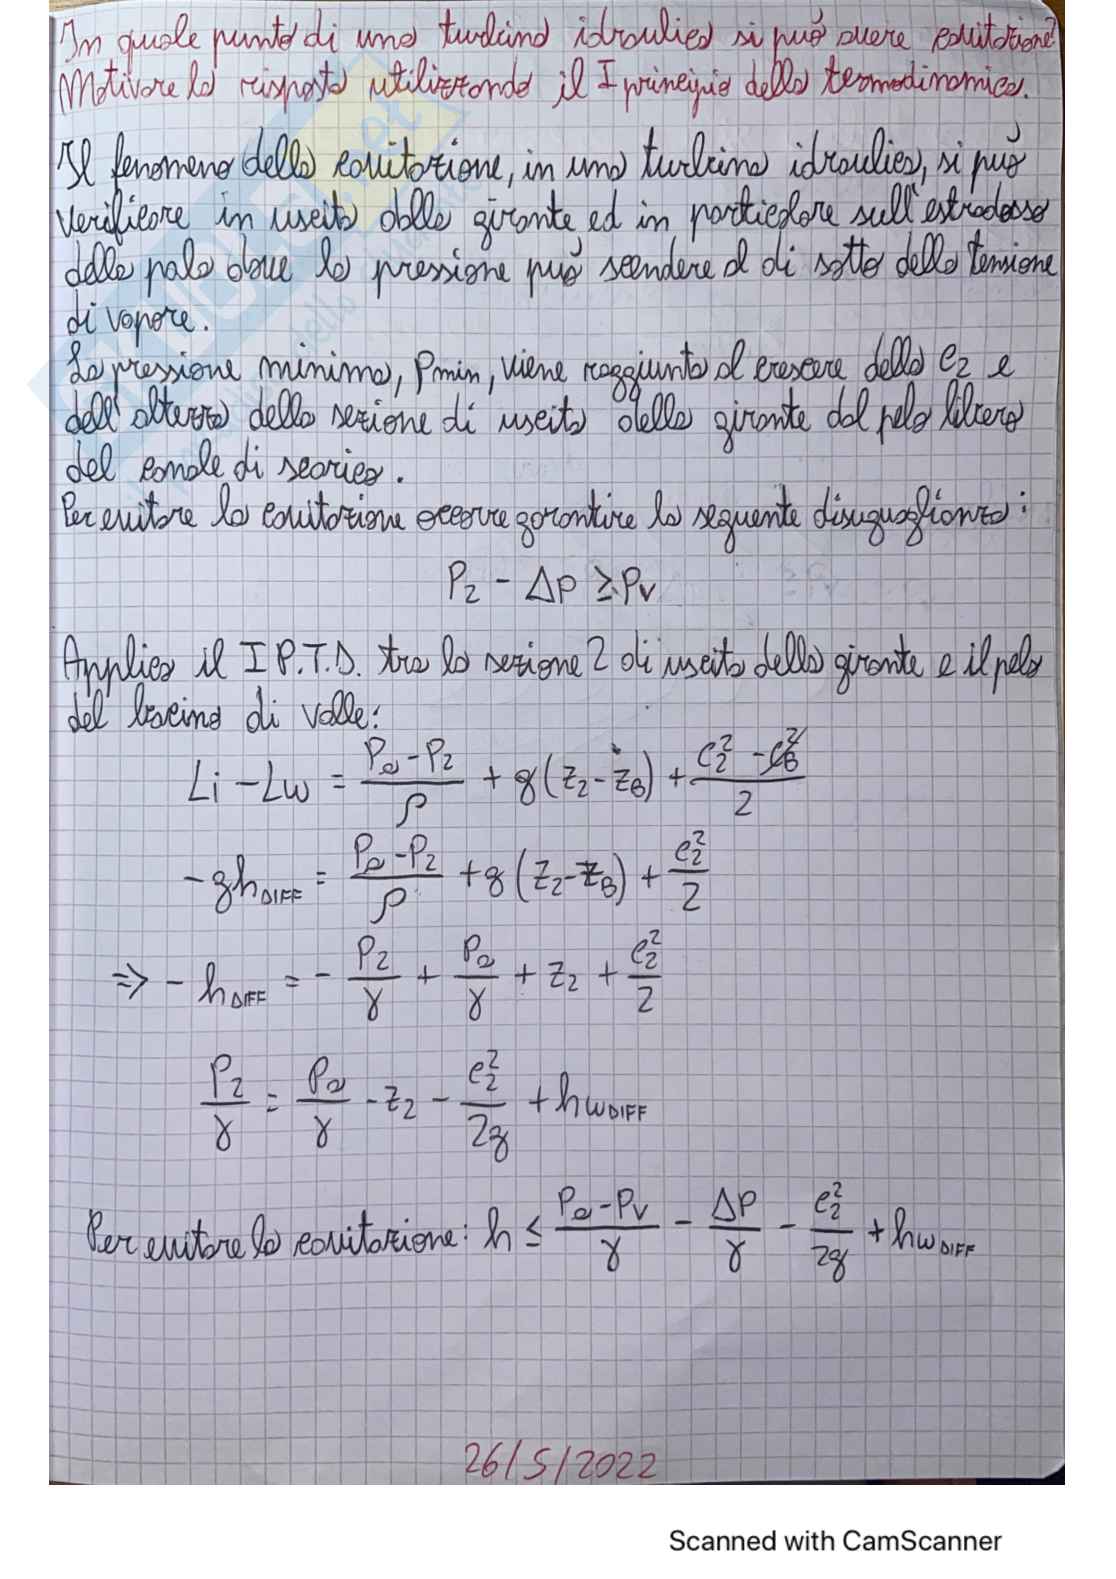 In quale punto di una turbina idraulica si può avere cavitazione?
Motivare la risposta utilizzando il I principio della termodinamica.
Il fenomeno della cavitazione, in una turbina idraulica, si può
verificare in uscita dalla girante ed in particolare sull'estradosso
della pala dove la pressione può scendere al di sotto della tensione
di vapore.
La pressione minima, Pmin, viene raggiunta al crescere della c₂ e
dell'altezza della sezione di uscita della girante dal pelo libero
del canale di scarico.
Per evitare la cavitazione occorre garantire la seguente disuguaglianza:
P₂ - ΔP ≥ Pv
Applico il I P.T.D. tra la sezione 2 di uscita della girante e il pelo
del bacino di valle:
Li - Lw = (Pa - P₂)/ρ + g(z₂ - zB) + (c₂² - cB²)/2
-ghDIFF = (Pa - P₂)/ρ + g(z₂ - zB) + c₂²/2
⇒ - hDIFF = - P₂/γ + Pa/γ + z₂ + c₂²/2
P₂/γ = Pa/γ - z₂ - c₂²/2g + hwDIFF
Per evitare la cavitazione: h ≤ (Pa - Pv)/γ - ΔP/γ - c₂²/2g + hwDIFF
26/5/2022
Scanned with CamScanner